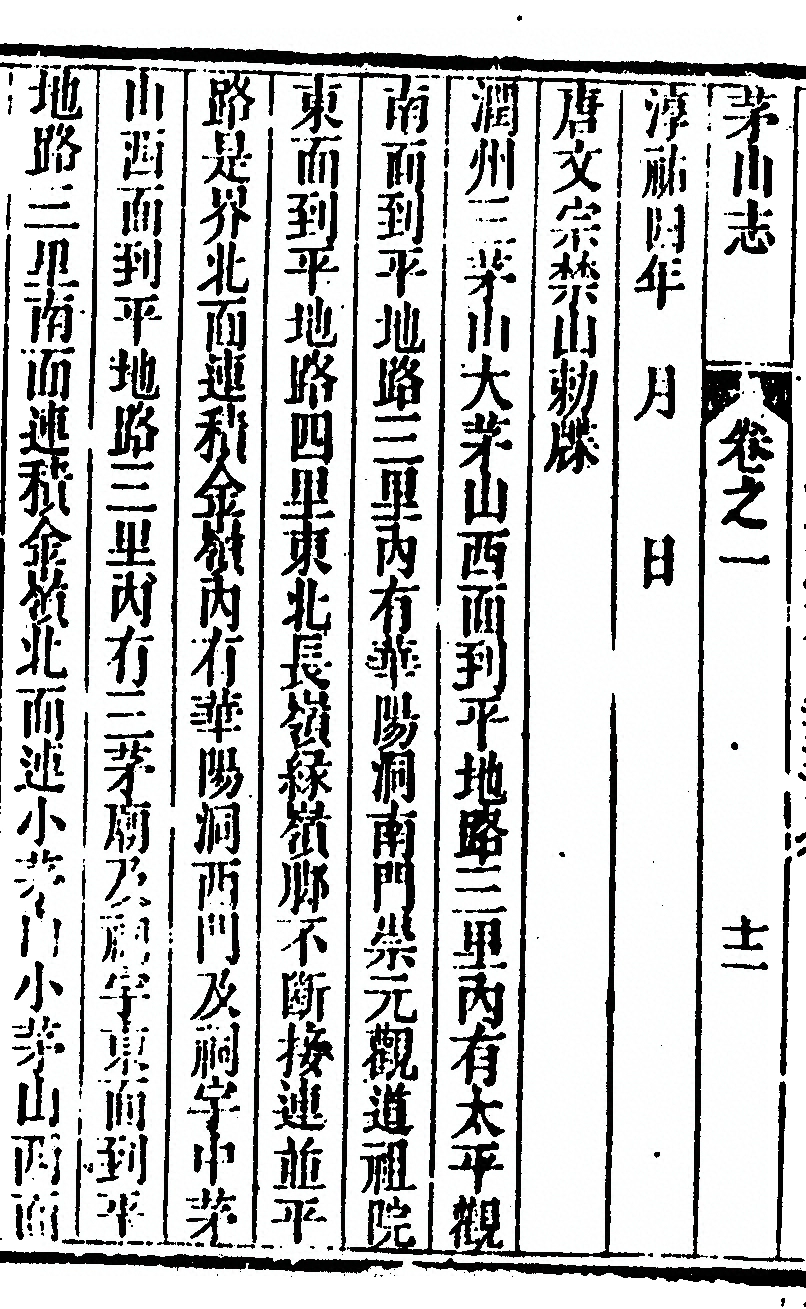 茅山志 卷之一 十二
淳祐四年 月 日
唐文宗禁山勅牒
潤州三茅山大茅山西面到平地路三里內有太平觀
南面到平地路三里內有華陽洞南門崇元觀道祖院
東面到平地路四里東北長嶺緣嶺脚不斷接連並平
路是界北面連積金嶺內有華陽洞西門及祠宇中茅
山西面到平地路三里內有三茅廟及祠宇東面到平
地路三里南面連積金嶺北面連小茅山小茅山西面